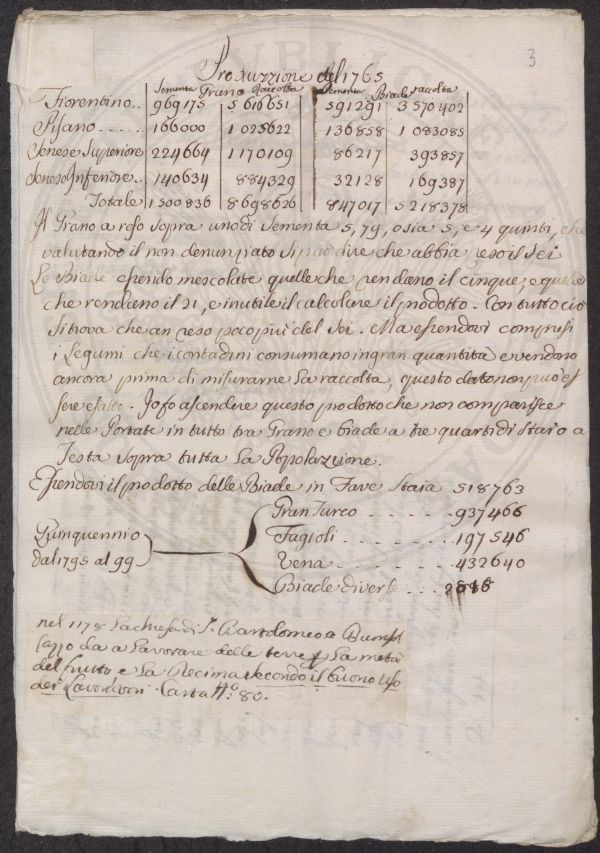 3
Produzzione del 1765
Sementa Grano Raccolta Sementa Biade raccolta
Fiorentino.. 969175 5616651 591291 3570402
Pisano...... 166000 1025622 136858 1083085
Senese Superiore 224664 1170109 86217 393857
Senese Inferiore.. 140634 884329 32128 169387
Totale 1500836 8698626 847017 5218378
Il Grano a reso sopra uno di Sementa 5,79, o sia 5, e 4 quinti, che
valutando il non denunziato si può dire che abbia reso il Sei
Le Biade essendo mescolate quelle che rendano il cinque, e quelle
che rendieno il 21, e inutile il calcolare il prodotto. Con tutto ciò
si trova che an reso poco piu del Sei. Ma essendovi compresi
i Legumi che i contadini consumano in gran quantita e vendono
ancora prima di misurarne la raccolta, questo dato non può es
sere esatto. Io fo ascendere questo prodotto che non comparisce
nelle Portate in tutto tra Grano e biade a tre quarti di Staio a
Testa sopra tutta la Popolazione.
Essendovi il prodotto delle Biade in Fave Staia 518763
Gran Turco - - - - - 937466
Quinquennio
dal 1795 al 99
Fagioli - - - - - 197546
Vena - - - - - 432640
Biade diverse - - -
nel 1178 la chiesa di S. Bartolomeo a
da a Lavorare delle terre la metà
del frutto e la Decima secondo il buono uso
dei Lavoratori. Carta N.º 80.